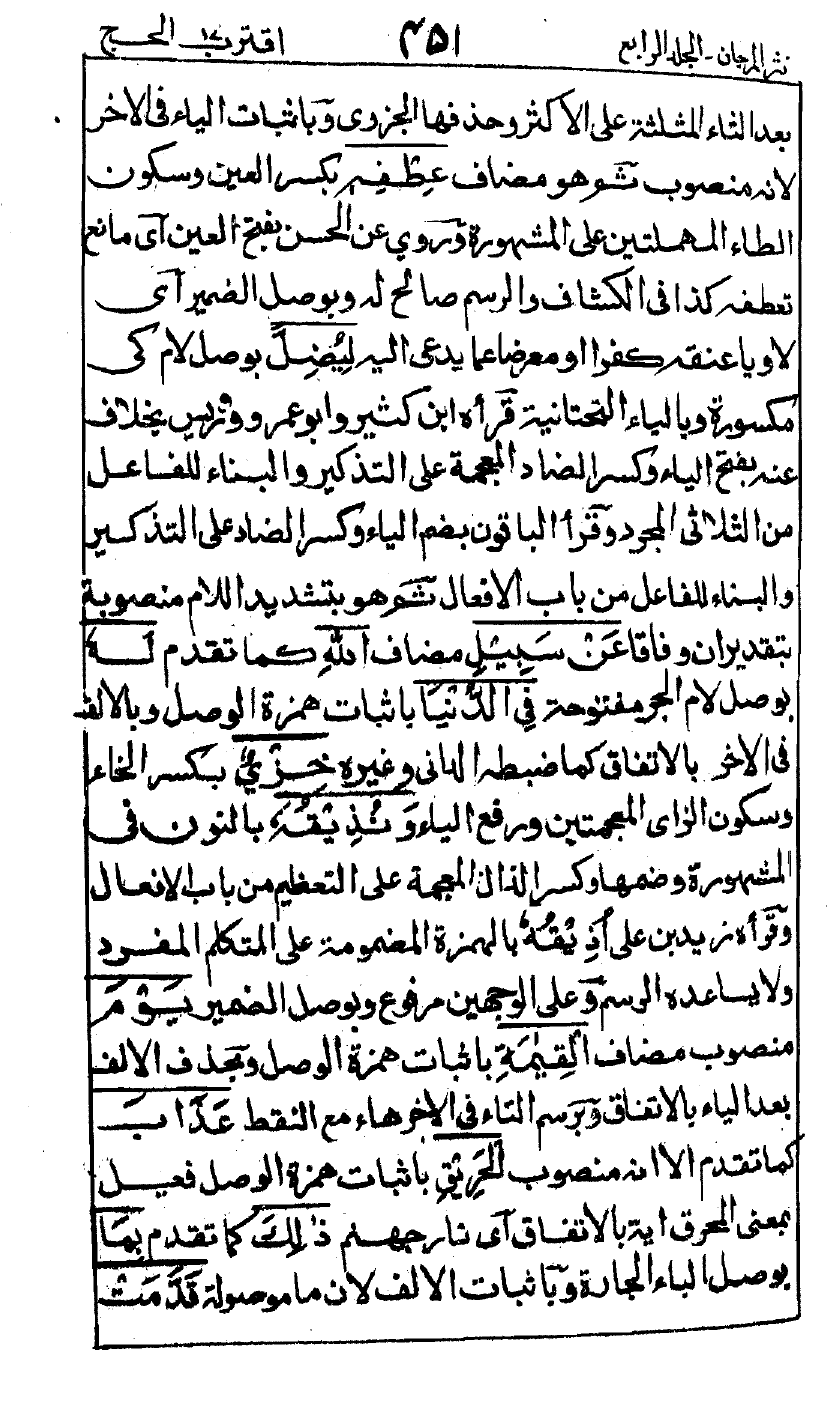 نثر المرجان - المجلد الرابع ٤٥١ اقترب ١٧ الحج
بعد الثاء المثلثة على الاكثر وحذفها الجزرى وباثبات الياء فى الاخر
لانه منصوب ثم هو مضاف عِطْفِهٖ بكسر العين وسكون
الطاء المهملتين على المشهورة وروي عن الحسن بفتح العين اى مانع
تعطفه كذا فى الكشاف والرسم صالح له وبوصل الضمير اى
لاويا عنقه كفرا او معرضا عما يدعى اليه لِيُضِلَّ بوصل لام كى
مكسورة وبالياء التحتانية قرأه ابن كثير وابو عمرو ورويس بخلاف
عنه بفتح الياء وكسر الضاد المعجمة على التذكير والبناء للفاعل
من الثلاثى المجرد وقرأ الباقون بضم الياء وكسر الضاد على التذكير
والبناء للفاعل من باب الافعال ثم هو بتشديد اللام منصوبة
بتقدير ان وفاقا عَنْ سَبِيْلِ مضاف اللهِ كما تقدم لَهٗ
بوصل لام الجر مفتوحة فِي الدُّنْيَا باثبات همزة الوصل وبالالف
فى الاخر بالاتفاق كما ضبطه الدانى وغيره خِزْيٌ بكسر الخاء
وسكون الزاى المعجمتين ورفع الياء وَنُذِيْقُهٗ بالنون فى
المشهورة وضمها وكسر الذال المعجمة على التعظيم من باب الافعال
وقرأه زيد بن على اُذِيْقُهٗ بالهمزة المضمومة على المتكلم المفرد
ولا يساعده الرسم وعلى الوجهين مرفوع وبوصل الضمير يَوْمَ
منصوب مضاف الْقِيٰمَةِ باثبات همزة الوصل وبحذف الالف
بعد الياء بالاتفاق وبرسم التاء فى الاخر هاء مع النقط عَذَابَ
كما تقدم الا انه منصوب الْحَرِيْقِ باثبات همزة الوصل فعيل
بمعنى المحرق اية بالاتفاق اى نار جهنم ذٰلِكَ كما تقدم بِمَا
بوصل الباء الجارة وباثبات الالف لان ما موصولة قَدَّمَتْ